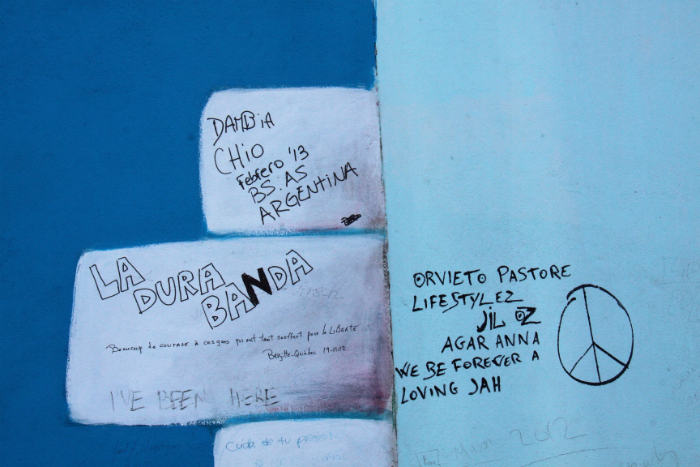 DAMBiA
CHiO
Febrero '13
BS. AS
ARGENTiNA
LA
DURA
BANDA
Beaucoup de courage à ces gens qui ont tant souffert pour la LiBerté
Brigitte-Québec
I'VE BEEN HERE
Cuida de tu
ORVIETO PASTORE
LIFESTYLEZ
JIL OZ
AGAR ANNA
WE BE FOREVER A
LOVING JAH